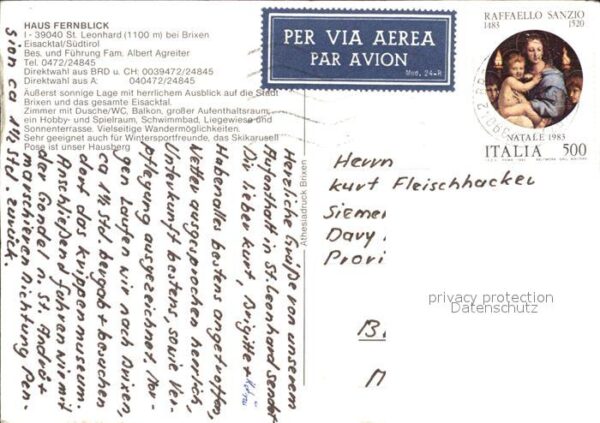 HAUS FERNBLICK
I - 39040 St. Leonhard (1100 m) bei Brixen
Eisacktal/Südtirol
Bes. und Führung Fam. Albert Agreiter
Tel. 0472/24845
Direktwahl aus BRD u. CH: 0039472/24845
Direktwahl aus A: 040472/24845
Äußerst sonnige Lage mit herrlichem Ausblick auf die Stadt
Brixen und das gesamte Eisacktal.
Zimmer mit Dusche/WC, Balkon, großer Aufenthaltsraum,
ein Hobby- und Spielraum, Schwimmbad, Liegewiese und
Sonnenterrasse. Vielseitige Wandermöglichkeiten.
Sehr geeignet auch für Wintersportfreunde, das Skikarusell
Pose ist unser Hausberg
PER VIA AEREA
PAR AVION
Mod. 24-R
RAFFAELLO SANZIO
1483 1520
NATALE 1983
ITALIA 500
Athesiadruck Brixen
Herzliche Grüße von unserem
Aufenthalt in St. Leonhard sendet
Dir lieber Kurt, Brigitte +
Haben alles bestens angetroffen,
Wetter ausgesprochen herrlich,
Unterkunft bestens, sowie Ver-
pflegung ausgezeichnet. Mor-
gen laufen wir nach Brixen,
ca 1½ Std. bergab + besuchen
dort das Krippenmuseum.
Anschließend fahren wir mit
der Gondel n. St. Andrä +
marschieren Richtung Pen-
sion ca 1½ Std. zurück.
Herrn
Kurt Fleischhacker
Siemen
Davy
Provi
B
M
privacy protection
Datenschutz